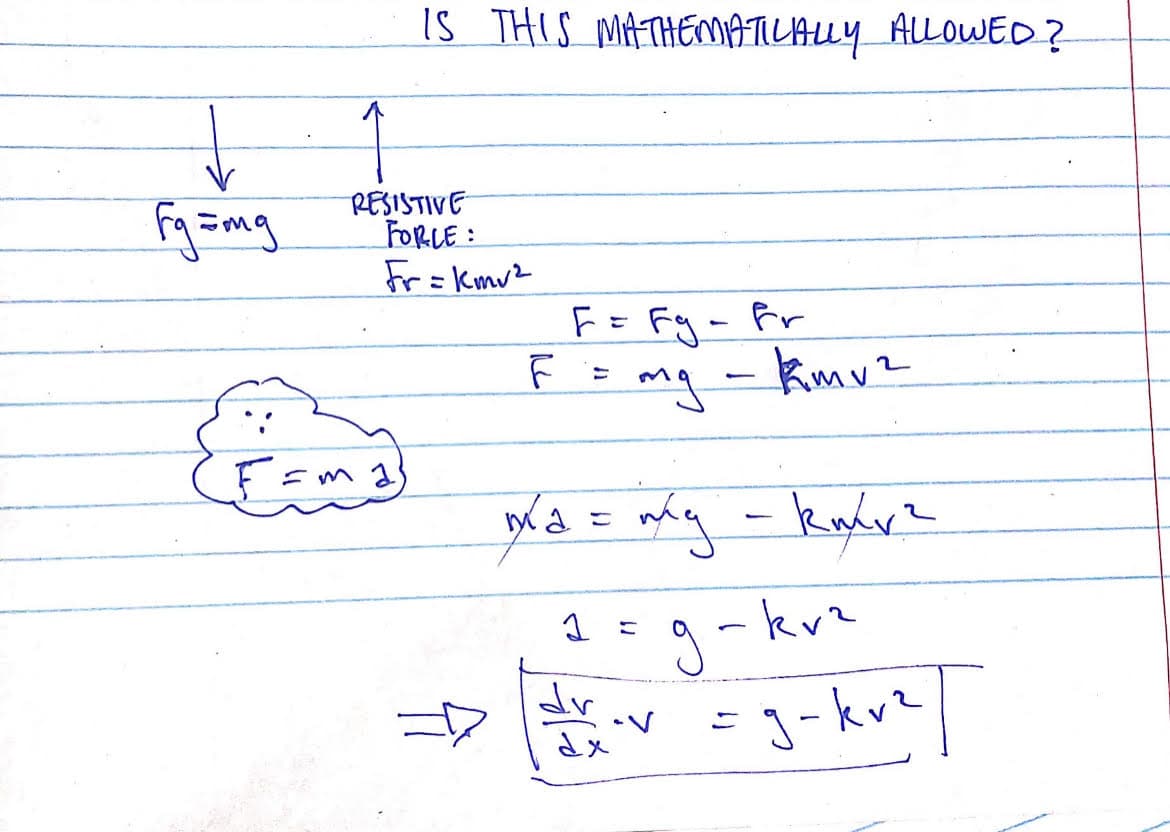 IS THIS MATHEMATICALLY ALLOWED?
Fg = mg
RESISTIVE
FORCE:
Fr = kmv²
F = Fg - Fr
F = mg - kmv²
∵
F = ma
ma = mg - kmv²
a = g - kv²
⇒ dv/dx · v = g - kv²